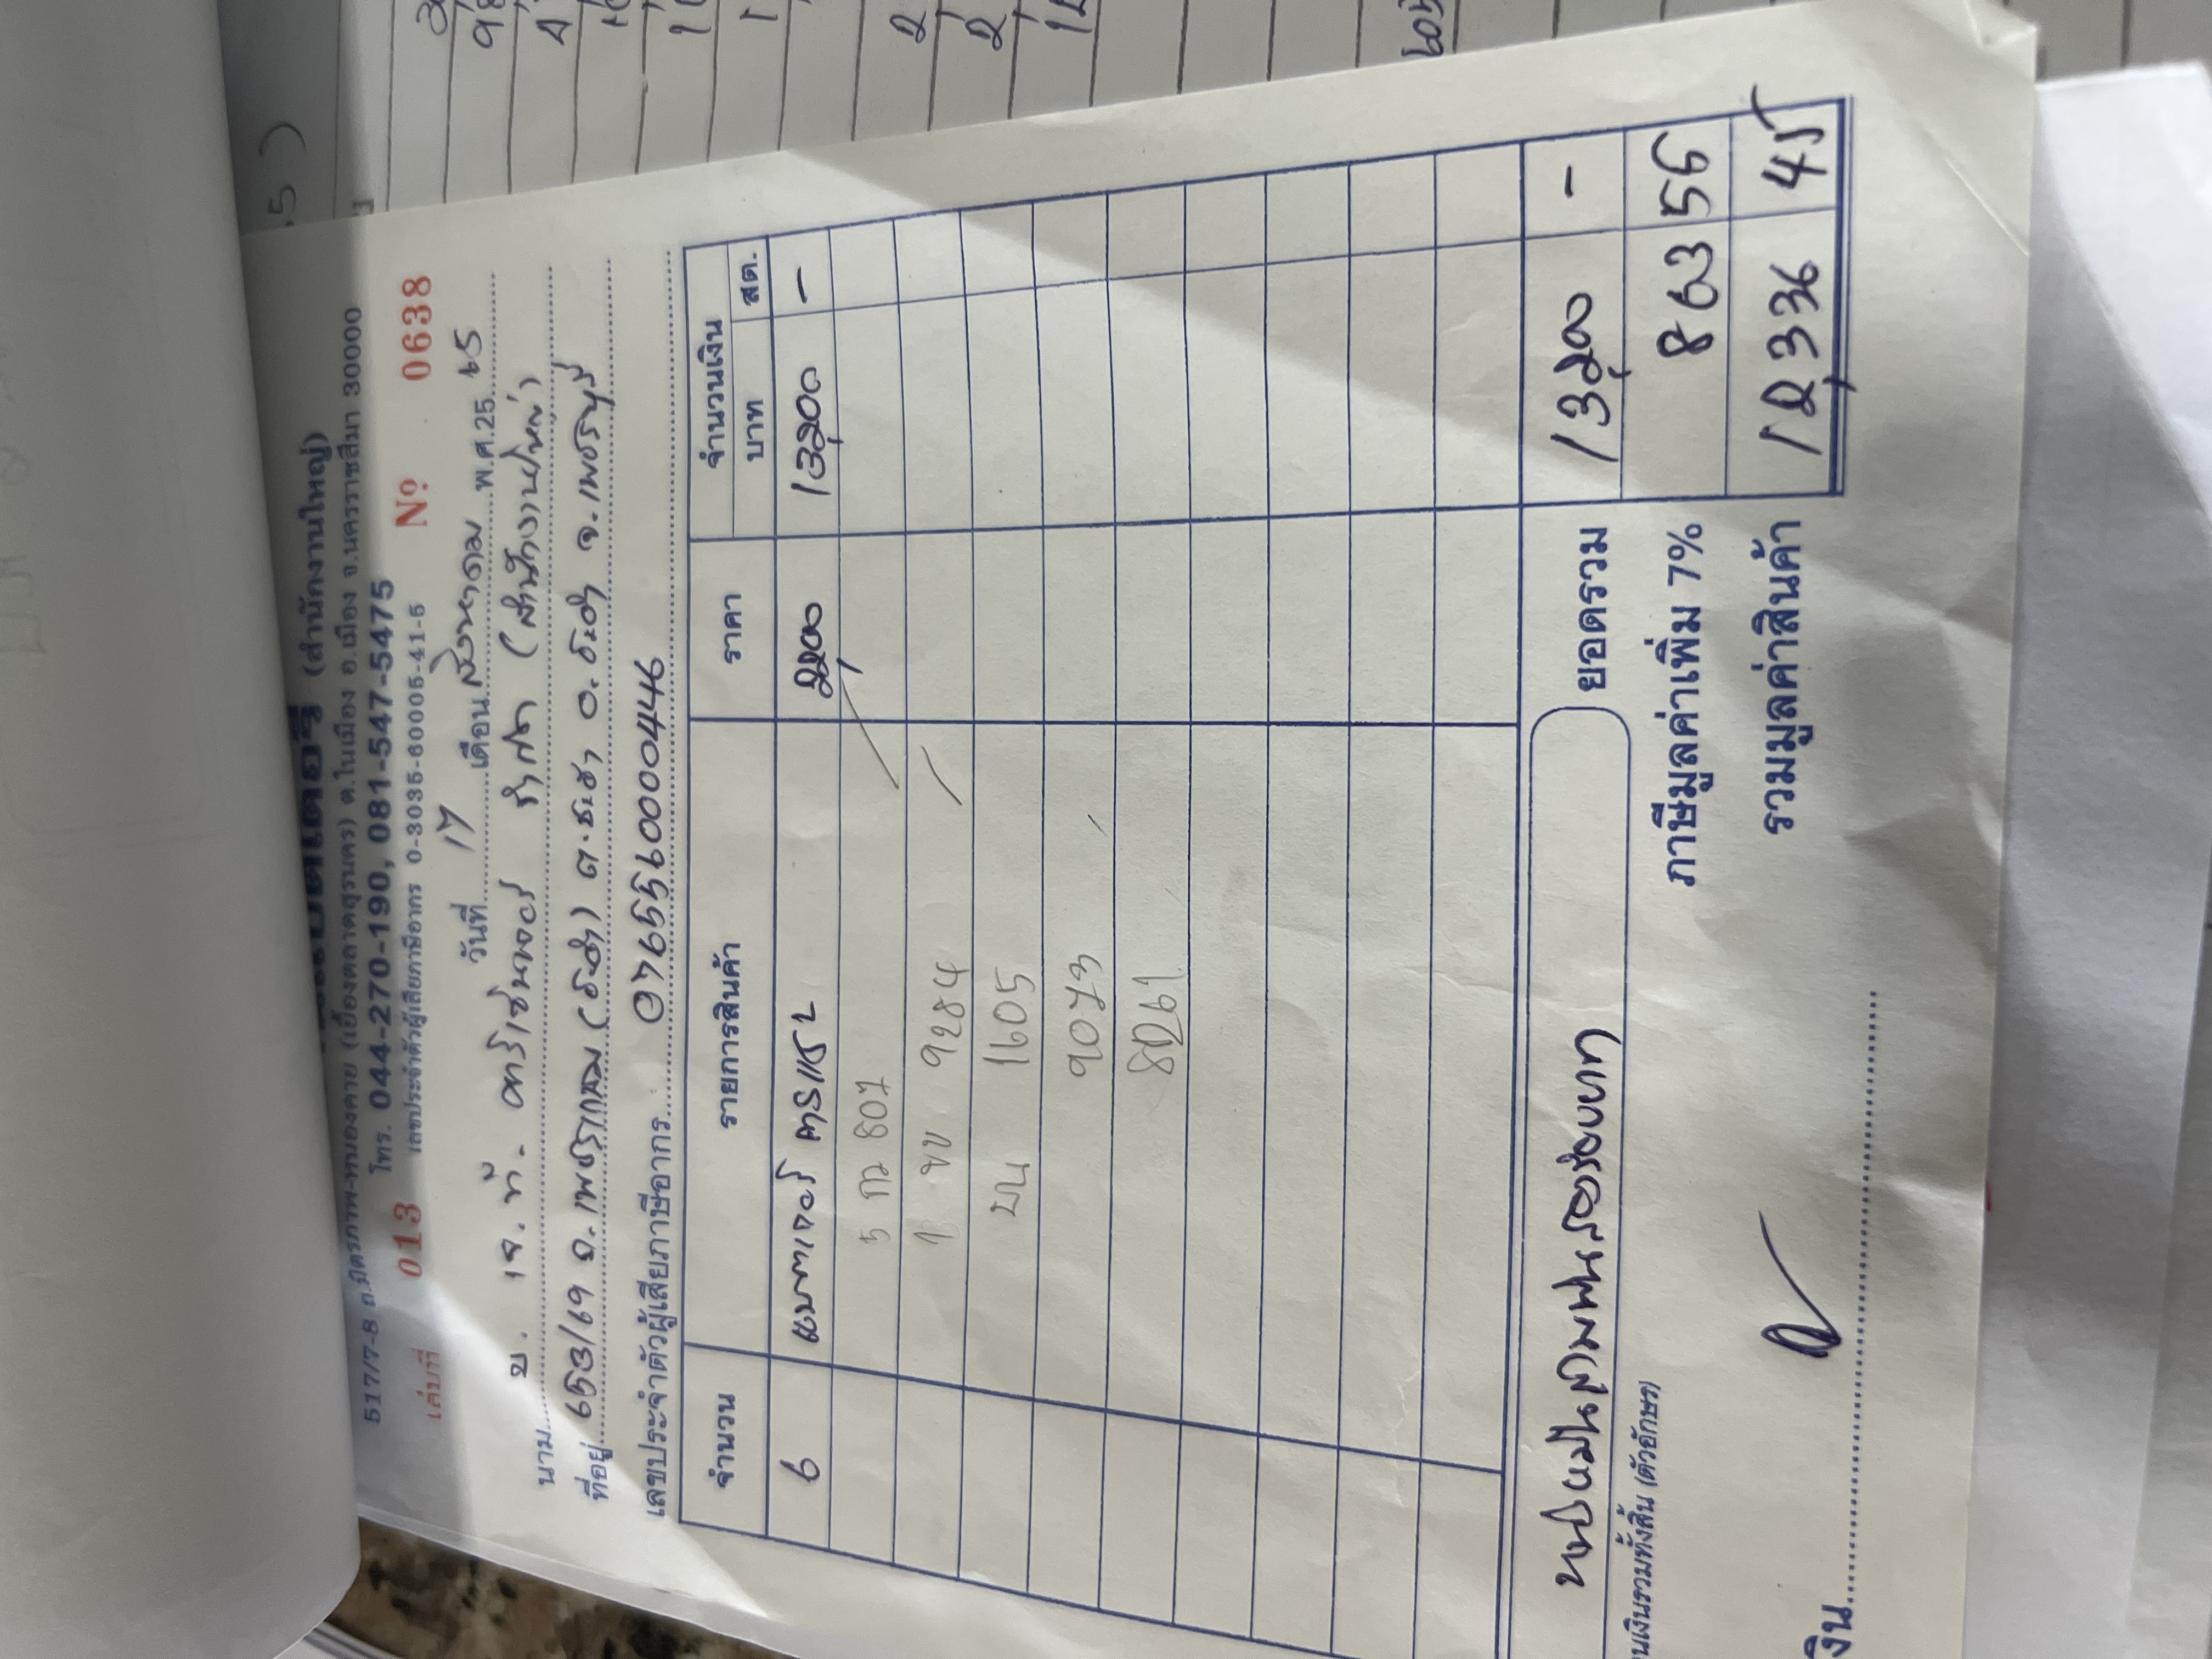 (สำนักงานใหญ่)
517/7-8 ถ.มิตรภาพ-หนองคาย (เยื้องตลาดสุรนคร) ต.ในเมือง อ.เมือง จ.นครราชสีมา 30000
โทร. 044-270-190, 081-547-5475
เล่มที่ 013 เลขประจำตัวผู้เสียภาษีอากร 0-3035-60005-41-5 № 0638
วันที่ 17 เดือน สิงหาคม พ.ศ.25 65
นาม บ. เจ. ที. คาร์เซ็นเตอร์ จำกัด (สำนักงานใหญ่)
ที่อยู่ 653/69 ถ.เพชรเกษม (ชะอำ) ต.ชะอำ อ.ชะอำ จ.เพชรบุรี
เลขประจำตัวผู้เสียภาษีอากร 0765560000446
จำนวน รายการสินค้า ราคา จำนวนเงิน
บาท สต.
6 2,200 13,200 -
กว 807
ขข 9284
ขน 1605
9073
8261
หนึ่งหมื่นสามพันสองร้อยบาท ยอดรวม 13,200 -
นเงินรวมทั้งสิ้น (ตัวอักษร) ภาษีมูลค่าเพิ่ม 7% 863 56
รวมมูลค่าสินค้า 12,336 45
งิน